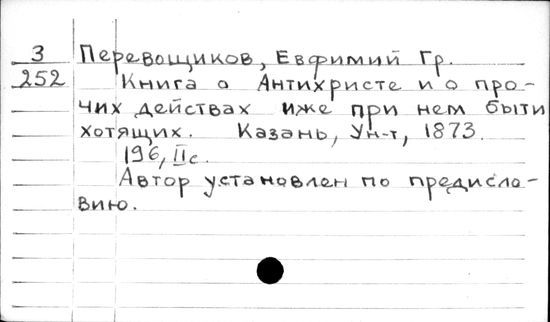 З Перевощиков, Евфимий Гр.
252 Книга о Антихристе и о про-
чих действах иже при нем быти
хотящих. Казань, Ун-т, 1873.
196, II с.
Автор установлен по предисло-
вию.